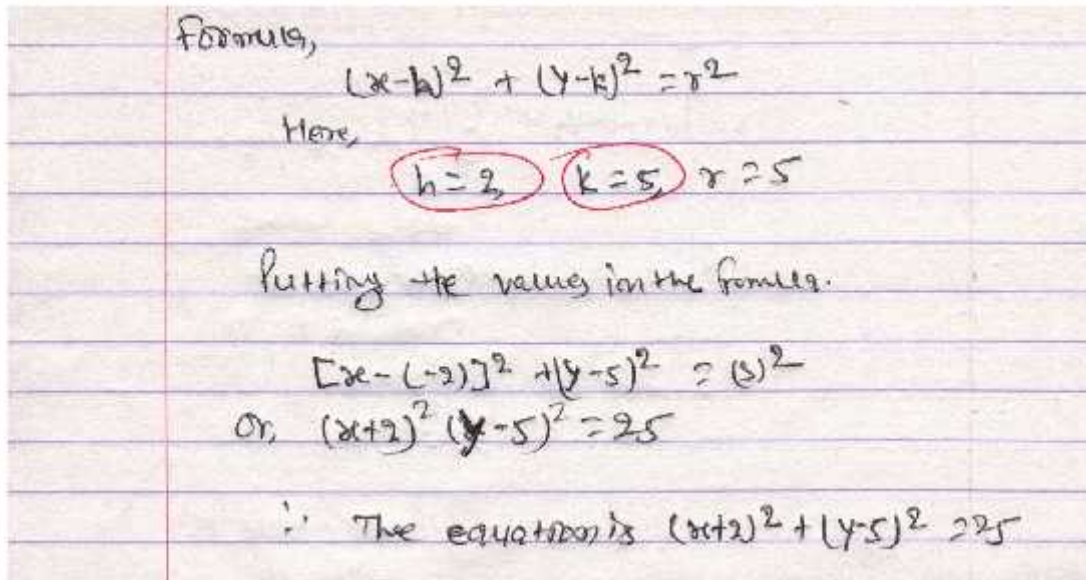 Formula,
(x-h)² + (y-k)² = r²
Here,
h = 2, k = 5, r = 5
Putting the values in the formula.
[x-(-2)]² + (y-5)² = (5)²
Or, (x+2)² (y-5)² = 25
∴ The equation is (x+2)² + (y-5)² = 25